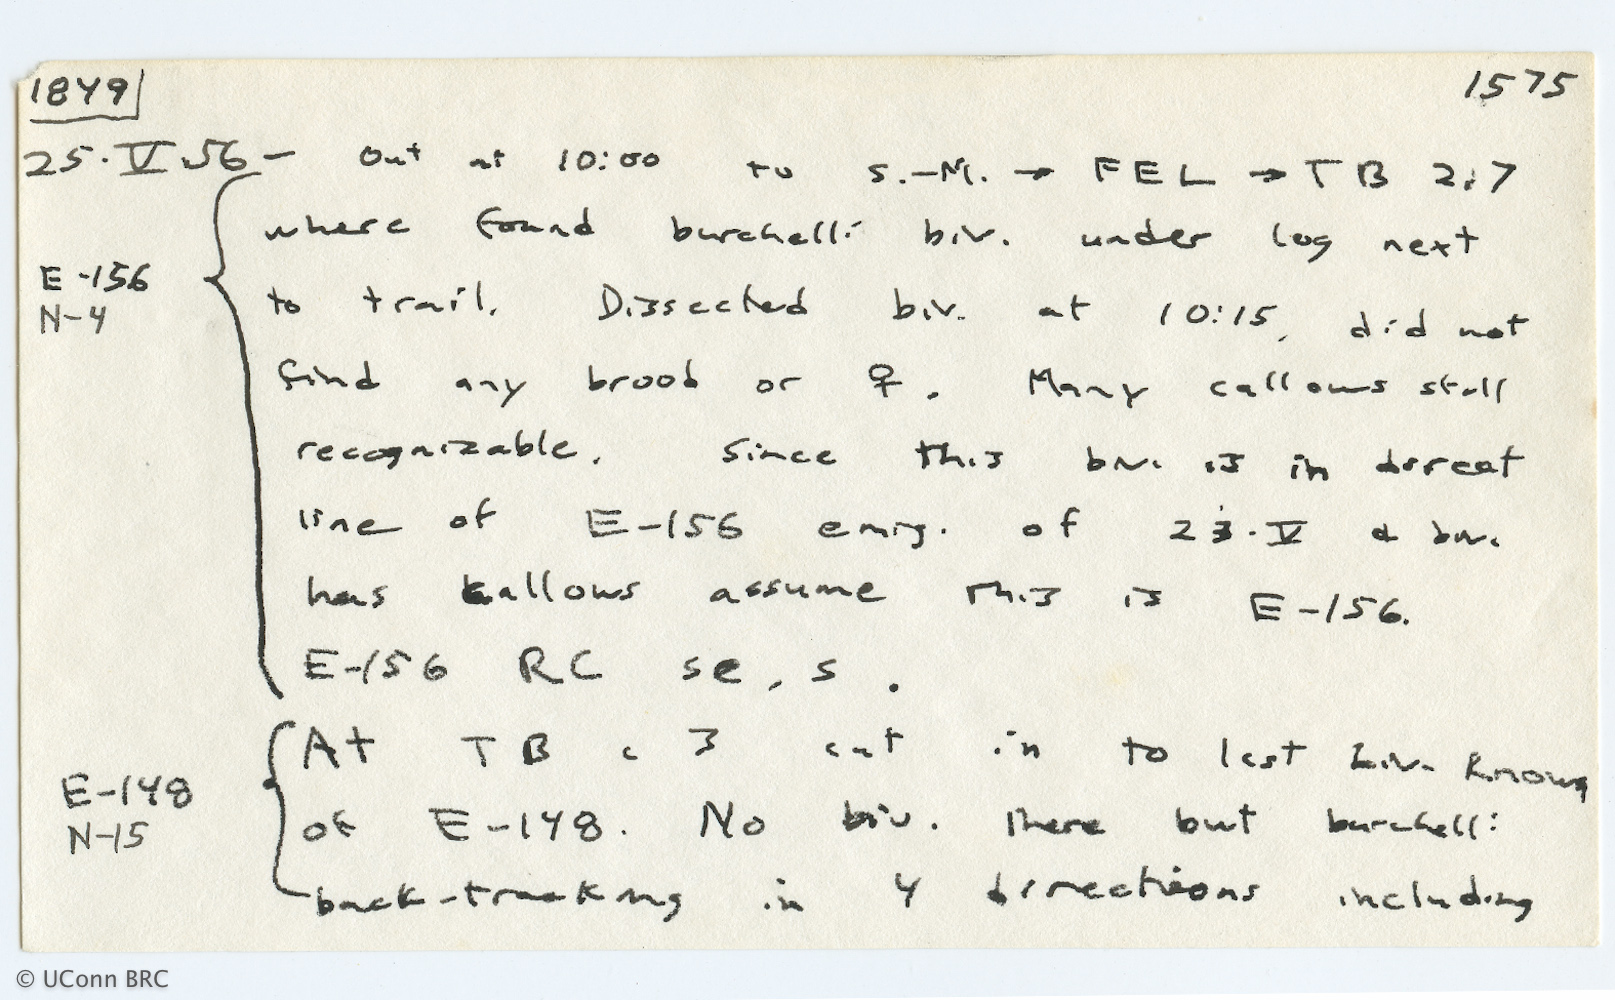 1849
1575
25.V.56 - Out at 10:00 to S.-M. → FEL → TB 2.7
where found burchelli biv. under log next
E-156
N-4
to trail. Dissected biv. at 10:15, did not
find any brood or ♀. Many callows still
recognizable. Since this biv. is in direct
line of E-156 emig. of 23.V & biv.
has callows assume this is E-156.
E-156 RC se, s.
At TB c 3 cut in to last biv. known
E-148
N-15
of E-148. No biv. there but burchelli
back-tracking in 4 directions including
© UConn BRC